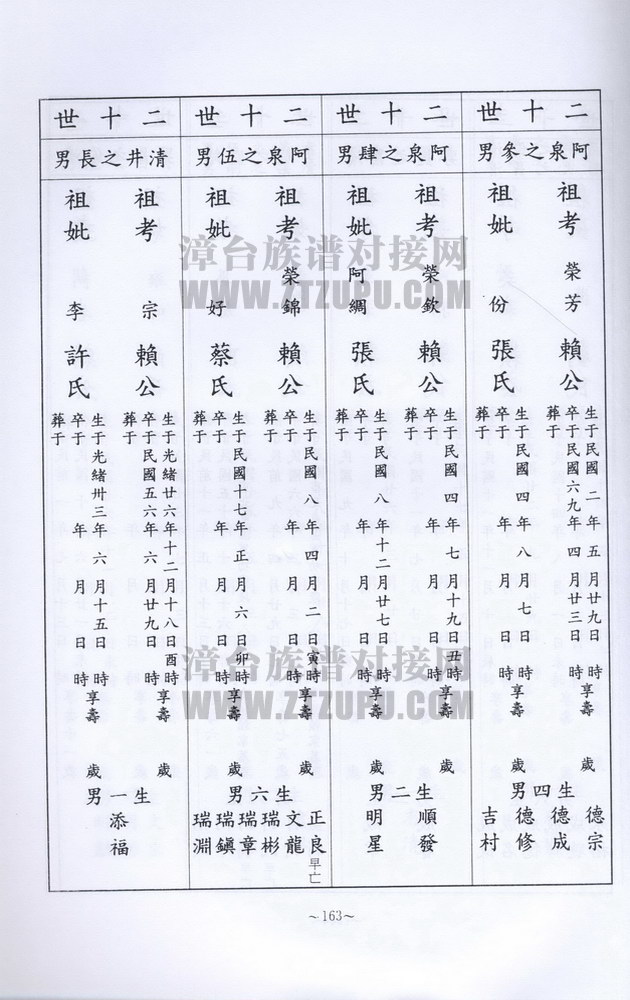 二十世
阿泉之參男
祖考 榮芳 賴公
生于民國二年五月廿九日 時享壽 歲
卒于民國六九年四月廿三日
葬于
祖妣 份 張氏
生于民國四年八月七日 時享壽 歲
卒于 年 月 日 時
葬于
生四男
德宗
德成
德修
吉村
二十世
阿泉之肆男
祖考 榮欽 賴公
生于民國四年七月十九日丑時享壽 歲
卒于 年 月 日 時
葬于
祖妣 阿綢 張氏
生于民國八年十二月廿七日 時享壽 歲
卒于 年 月 日 時
葬于
生二男
順發
明星
二十世
阿泉之伍男
祖考 榮錦 賴公
生于民國八年四月二日寅時享壽 歲
卒于 年 月 日 時
葬于
祖妣 好 蔡氏
生于民國十七年正月六日卯時享壽 歲
卒于 年 月 日 時
葬于
生六男
正良早亡
文龍
瑞彬
瑞章
瑞鎭
瑞淵
二十世
清井之長男
祖考 宗 賴公
生于光緒廿六年十二月十八日酉時享壽 歲
卒于民國五六年六月廿九日 時
葬于
祖妣 李 許氏
生于光緒卅三年六月十五日 時享壽 歲
卒于 年 月 日 時
葬于
生一男
添福
~163~
漳台族谱对接网
WWW.ZTZUPU.COM
漳台族谱对接网
WWW.ZTZUPU.COM